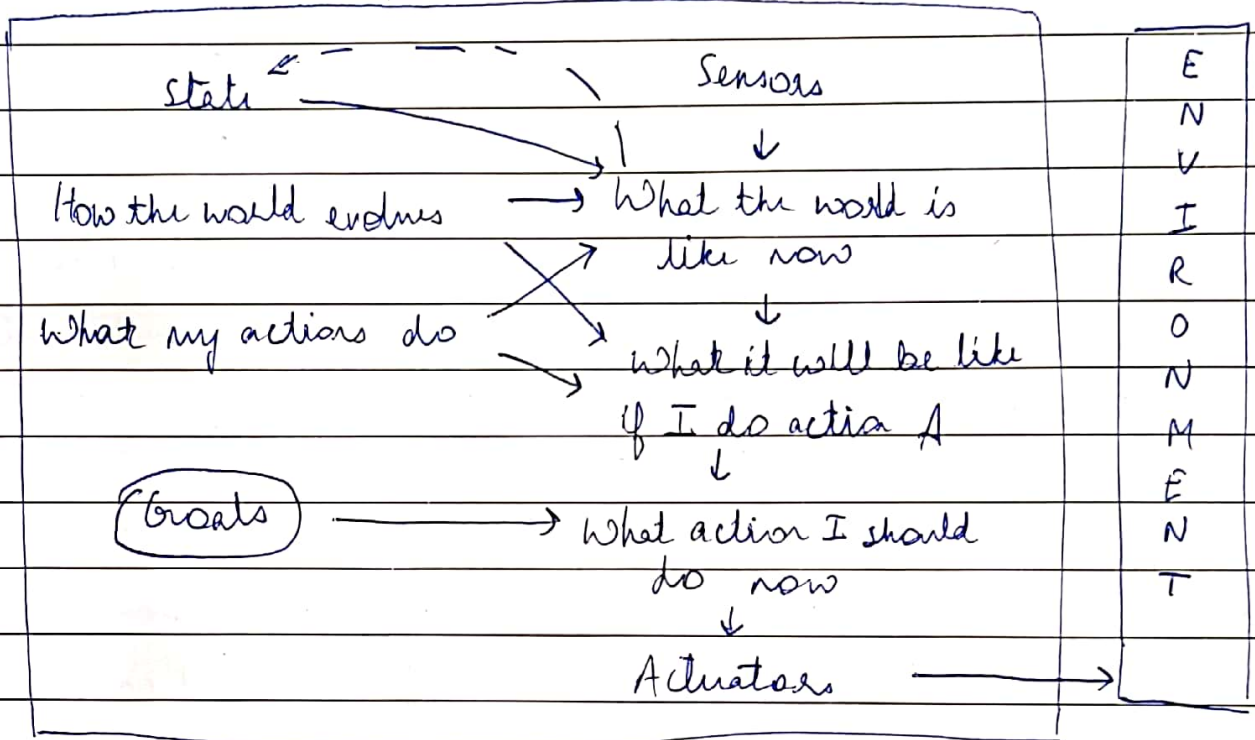 State
Sensors
How the world evolves
What the world is
like now
What my actions do
What it will be like
if I do action A
Goals
What action I should
do now
Actuators
ENVIRONMENT